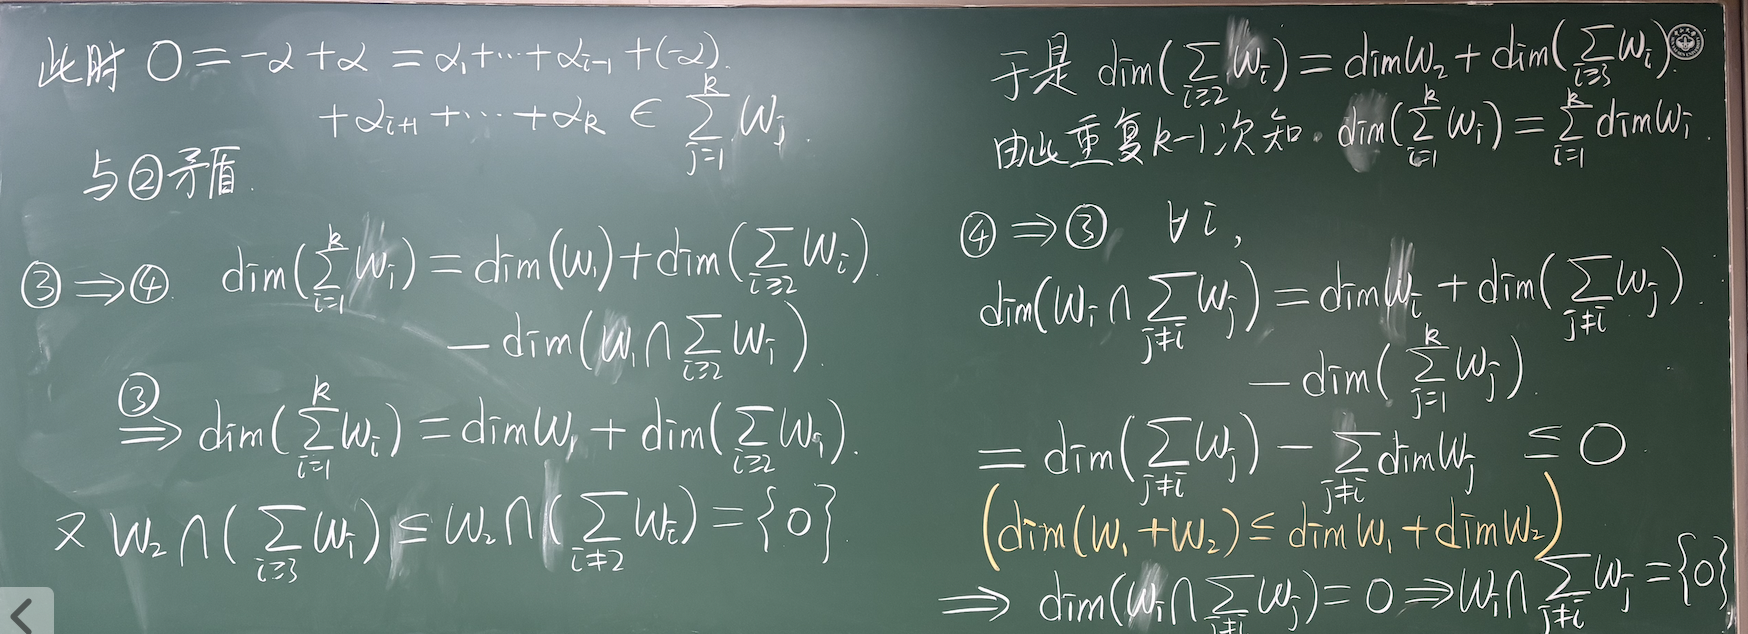 此时 0 = -α + α = α₁ + ⋯ + α_{i-1} + (-α).
+ α_{i+1} + ⋯ + α_k ∈ \sum_{j=1}^{k} W_j.
与②矛盾.
③ ⟹ ④. dim(\sum_{i=1}^{k} W_i) = dim(W₁) + dim(\sum_{i≥2} W_i).
- dim(W₁ ∩ \sum_{i≥2} W_i).
③
⟹ dim(\sum_{i=1}^{k} W_i) = dim W₁ + dim(\sum_{i≥2} W_i).
又 W₂ ∩ (\sum_{i≥3} W_i) ⊆ W₂ ∩ (\sum_{i≠2} W_i) = {0}.
于是 dim(\sum_{i≥2} W_i) = dim W₂ + dim(\sum_{i≥3} W_i).
由此重复 k-1 次知. dim(\sum_{i=1}^{k} W_i) = \sum_{i=1}^{k} dim W_i.
④ ⟹ ③ ∀i,
dim(W_i ∩ \sum_{j≠i} W_j) = dim W_i + dim(\sum_{j≠i} W_j).
- dim(\sum_{j=1}^{k} W_j).
= dim(\sum_{j≠i} W_j) - \sum_{j≠i} dim W_j ≤ 0.
(dim(W₁ + W₂) ≤ dim W₁ + dim W₂)
⟹ dim(W_i ∩ \sum_{j≠i} W_j) = 0 ⟹ W_i ∩ \sum_{j≠i} W_j = {0}